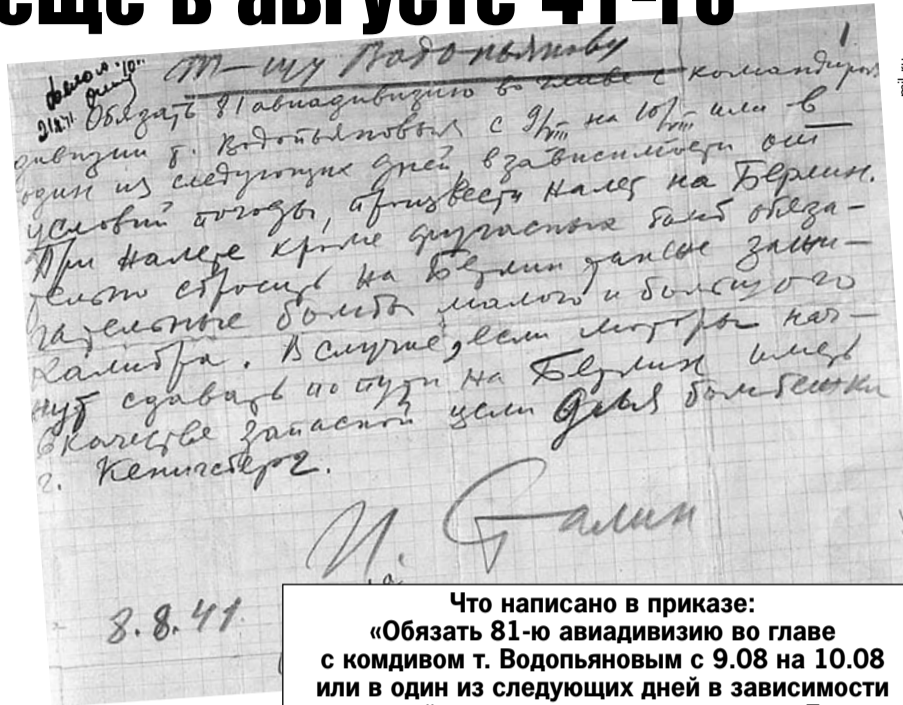 еще в августе 41-го
Т-щу Водопьянову
Обязать 81 авиадивизию во главе с командиром
дивизии т. Водопьяновым с 9/VIII на 10/VIII или в
один из следующих дней в зависимости от
условий погоды, произвести налет на Берлин.
При налете кроме фугасных бомб обяза-
тельно сбросить на Берлин также зажи-
гательные бомбы малого и большого
калибра. В случае, если моторы нач-
нут сдавать по пути на Берлин иметь
в качестве запасной цели для бомбежки
г. Кенигсберг.
И. Сталин
8.8.41
Что написано в приказе:
«Обязать 81-ю авиадивизию во главе
с комдивом т. Водопьяновым с 9.08 на 10.08
или в один из следующих дней в зависимости